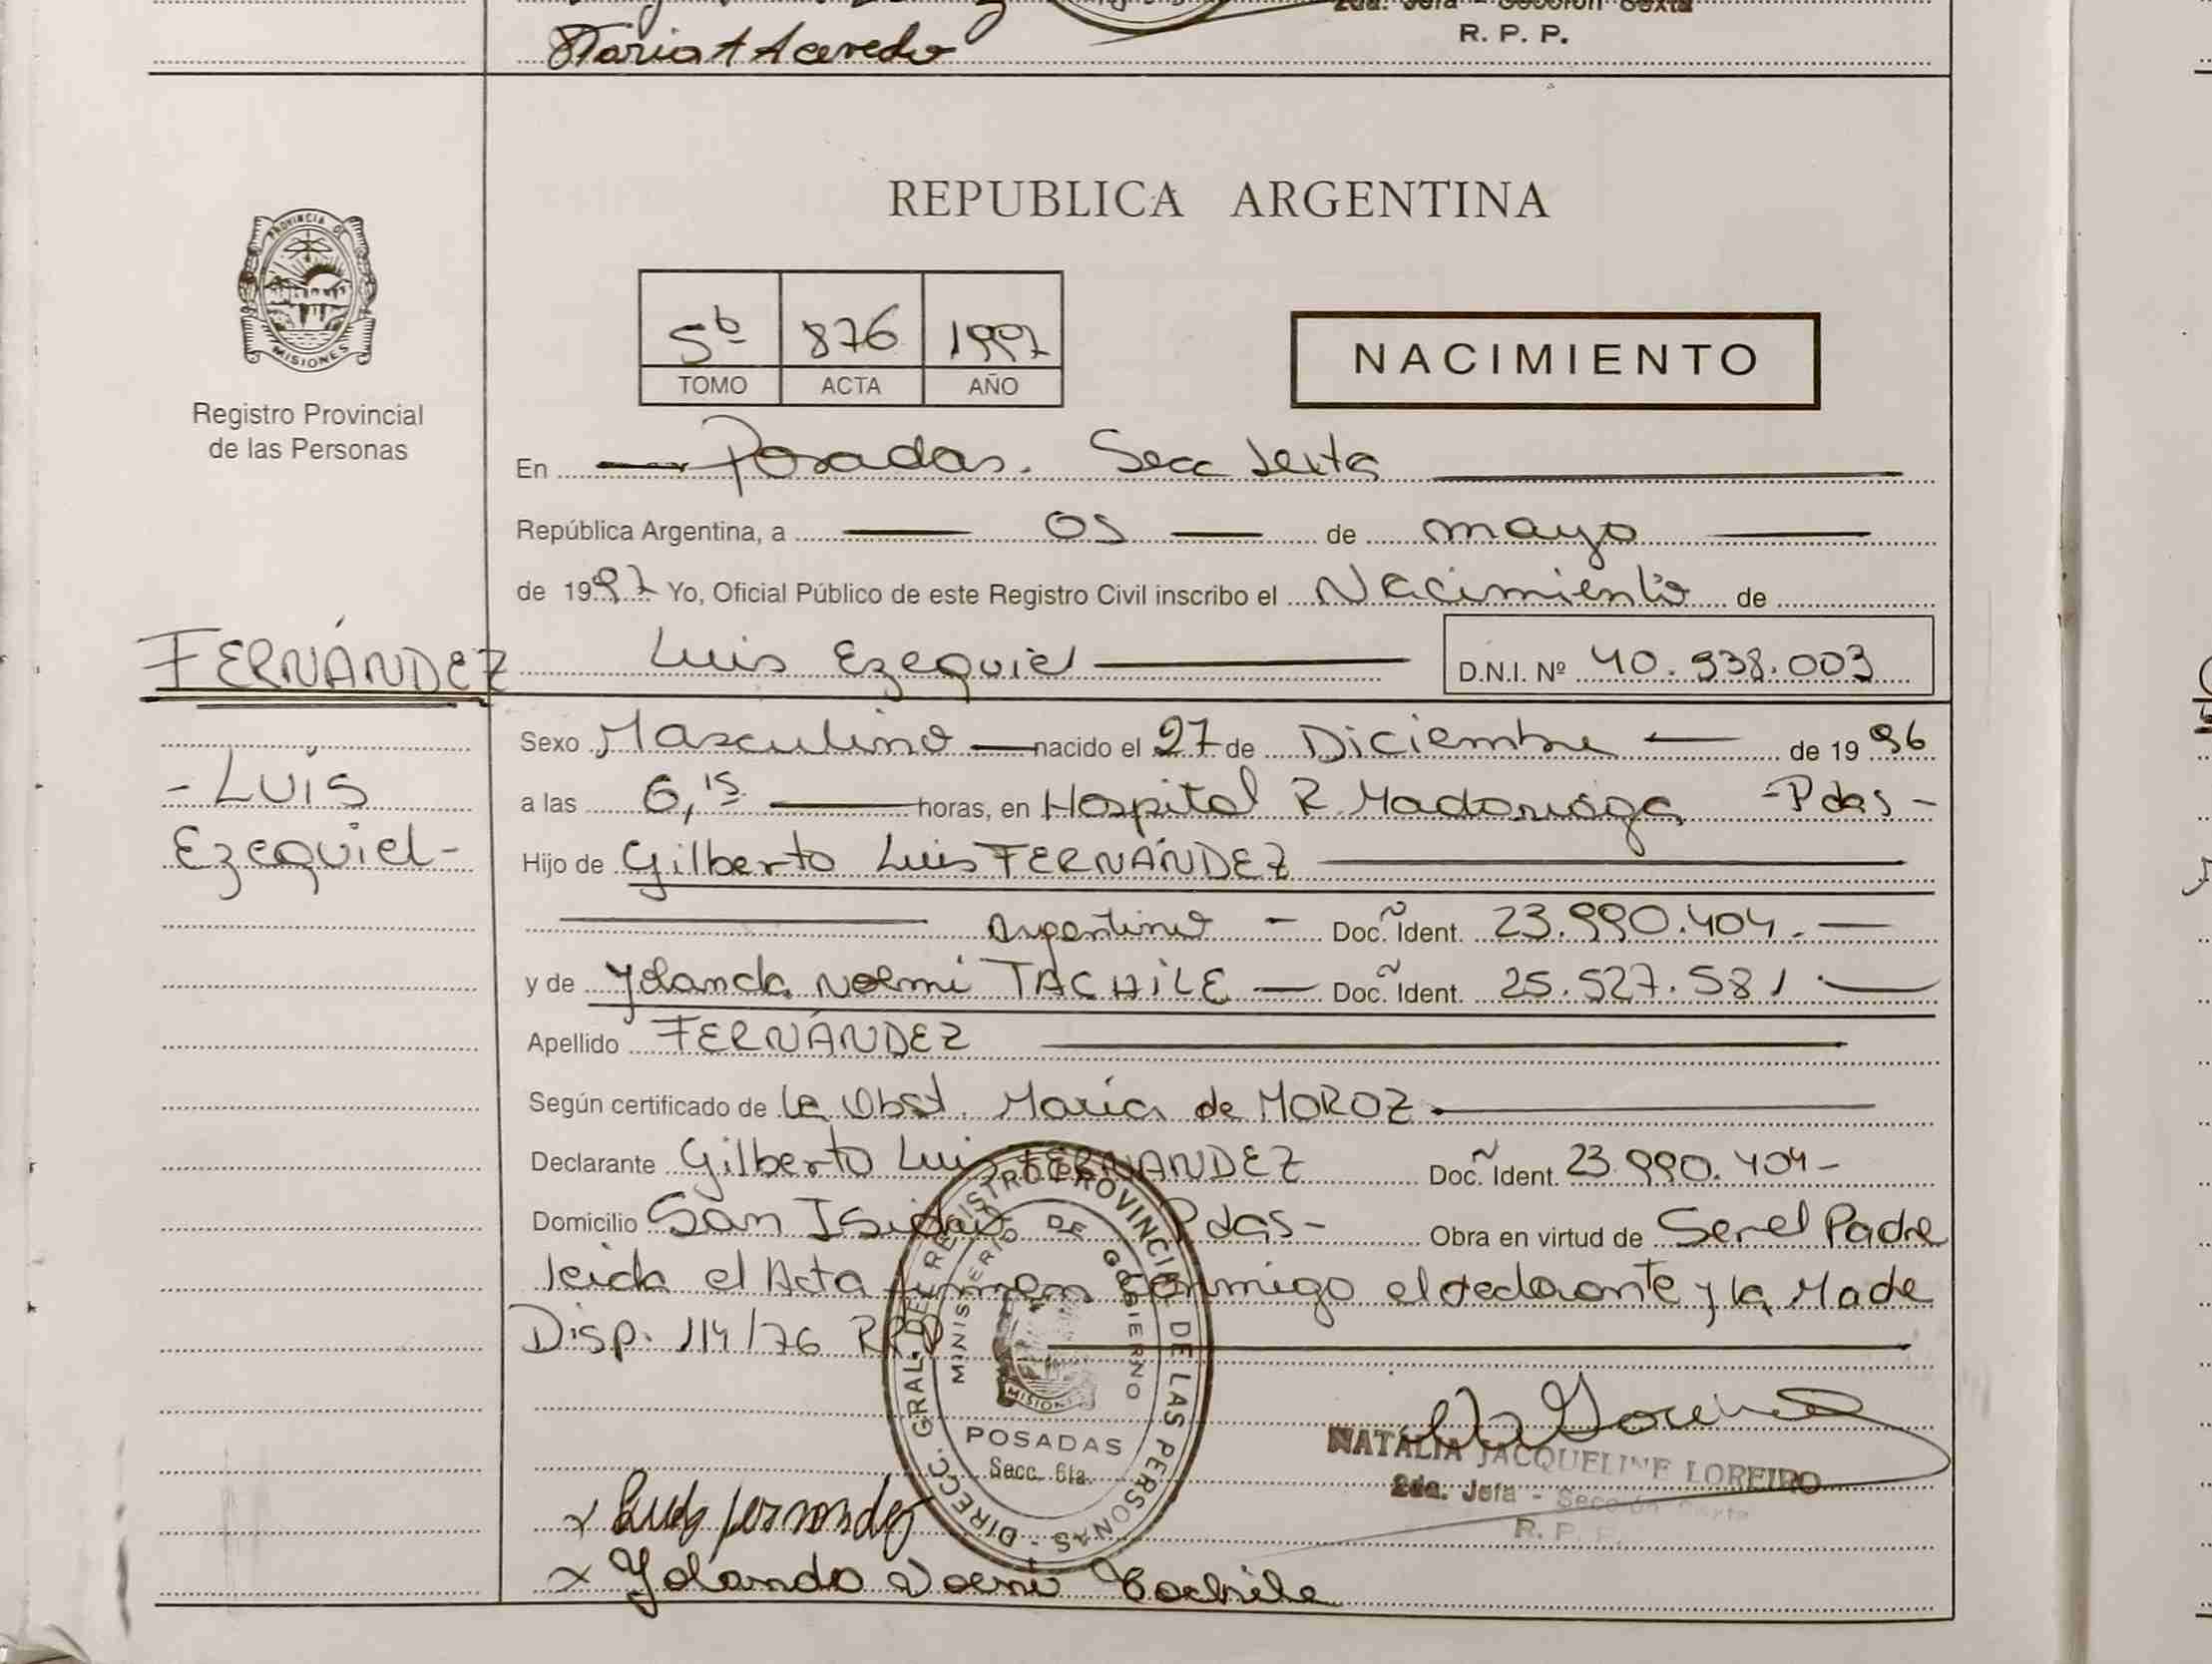 Maria A Acevedo
2da. Jefa - Sección Sexta
R. P. P.
REPUBLICA ARGENTINA
PROVINCIA DE
MISIONES
Registro Provincial
de las Personas
5b 876 1997
TOMO ACTA AÑO
NACIMIENTO
En Posadas. Secc Sexta
República Argentina, a 05 de mayo
de 1997 Yo, Oficial Público de este Registro Civil inscribo el Nacimiento de
FERNÁNDEZ
Luis Ezequiel D.N.I. Nº 40.938.003
- Luis
Ezequiel -
Sexo Masculino nacido el 27 de Diciembre de 1996
a las 6,15 horas, en Hospital R. Madariaga - Pdas -
Hijo de Gilberto Luis FERNÁNDEZ
Argentino - Doc. Ident. 23.990.404. -
y de Yolanda Noemi TACHILE - Doc. Ident. 25.527.581. -
Apellido FERNÁNDEZ
Según certificado de la Obst. María de MOROZ.
Declarante Gilberto Luis FERNANDEZ Doc. Ident. 23.990.404 -
Domicilio San Isidro Pdas - Obra en virtud de Ser el Padre
leida el Acta firman conmigo el declarante y la Made
Disp. 114/76 RPP
DIRECC. GRAL. DE REGISTRO PROVINCIAL DE LAS PERSONAS -
MINISTERIO DE GOBIERNO
MISIONES
POSADAS
Secc. 6ta.
NATALIA JACQUELINE LOREIRO
2da. Jefa - Sección Sexta
R. P. P.
x Luis fernandez
x Yolanda Noemi Tachile